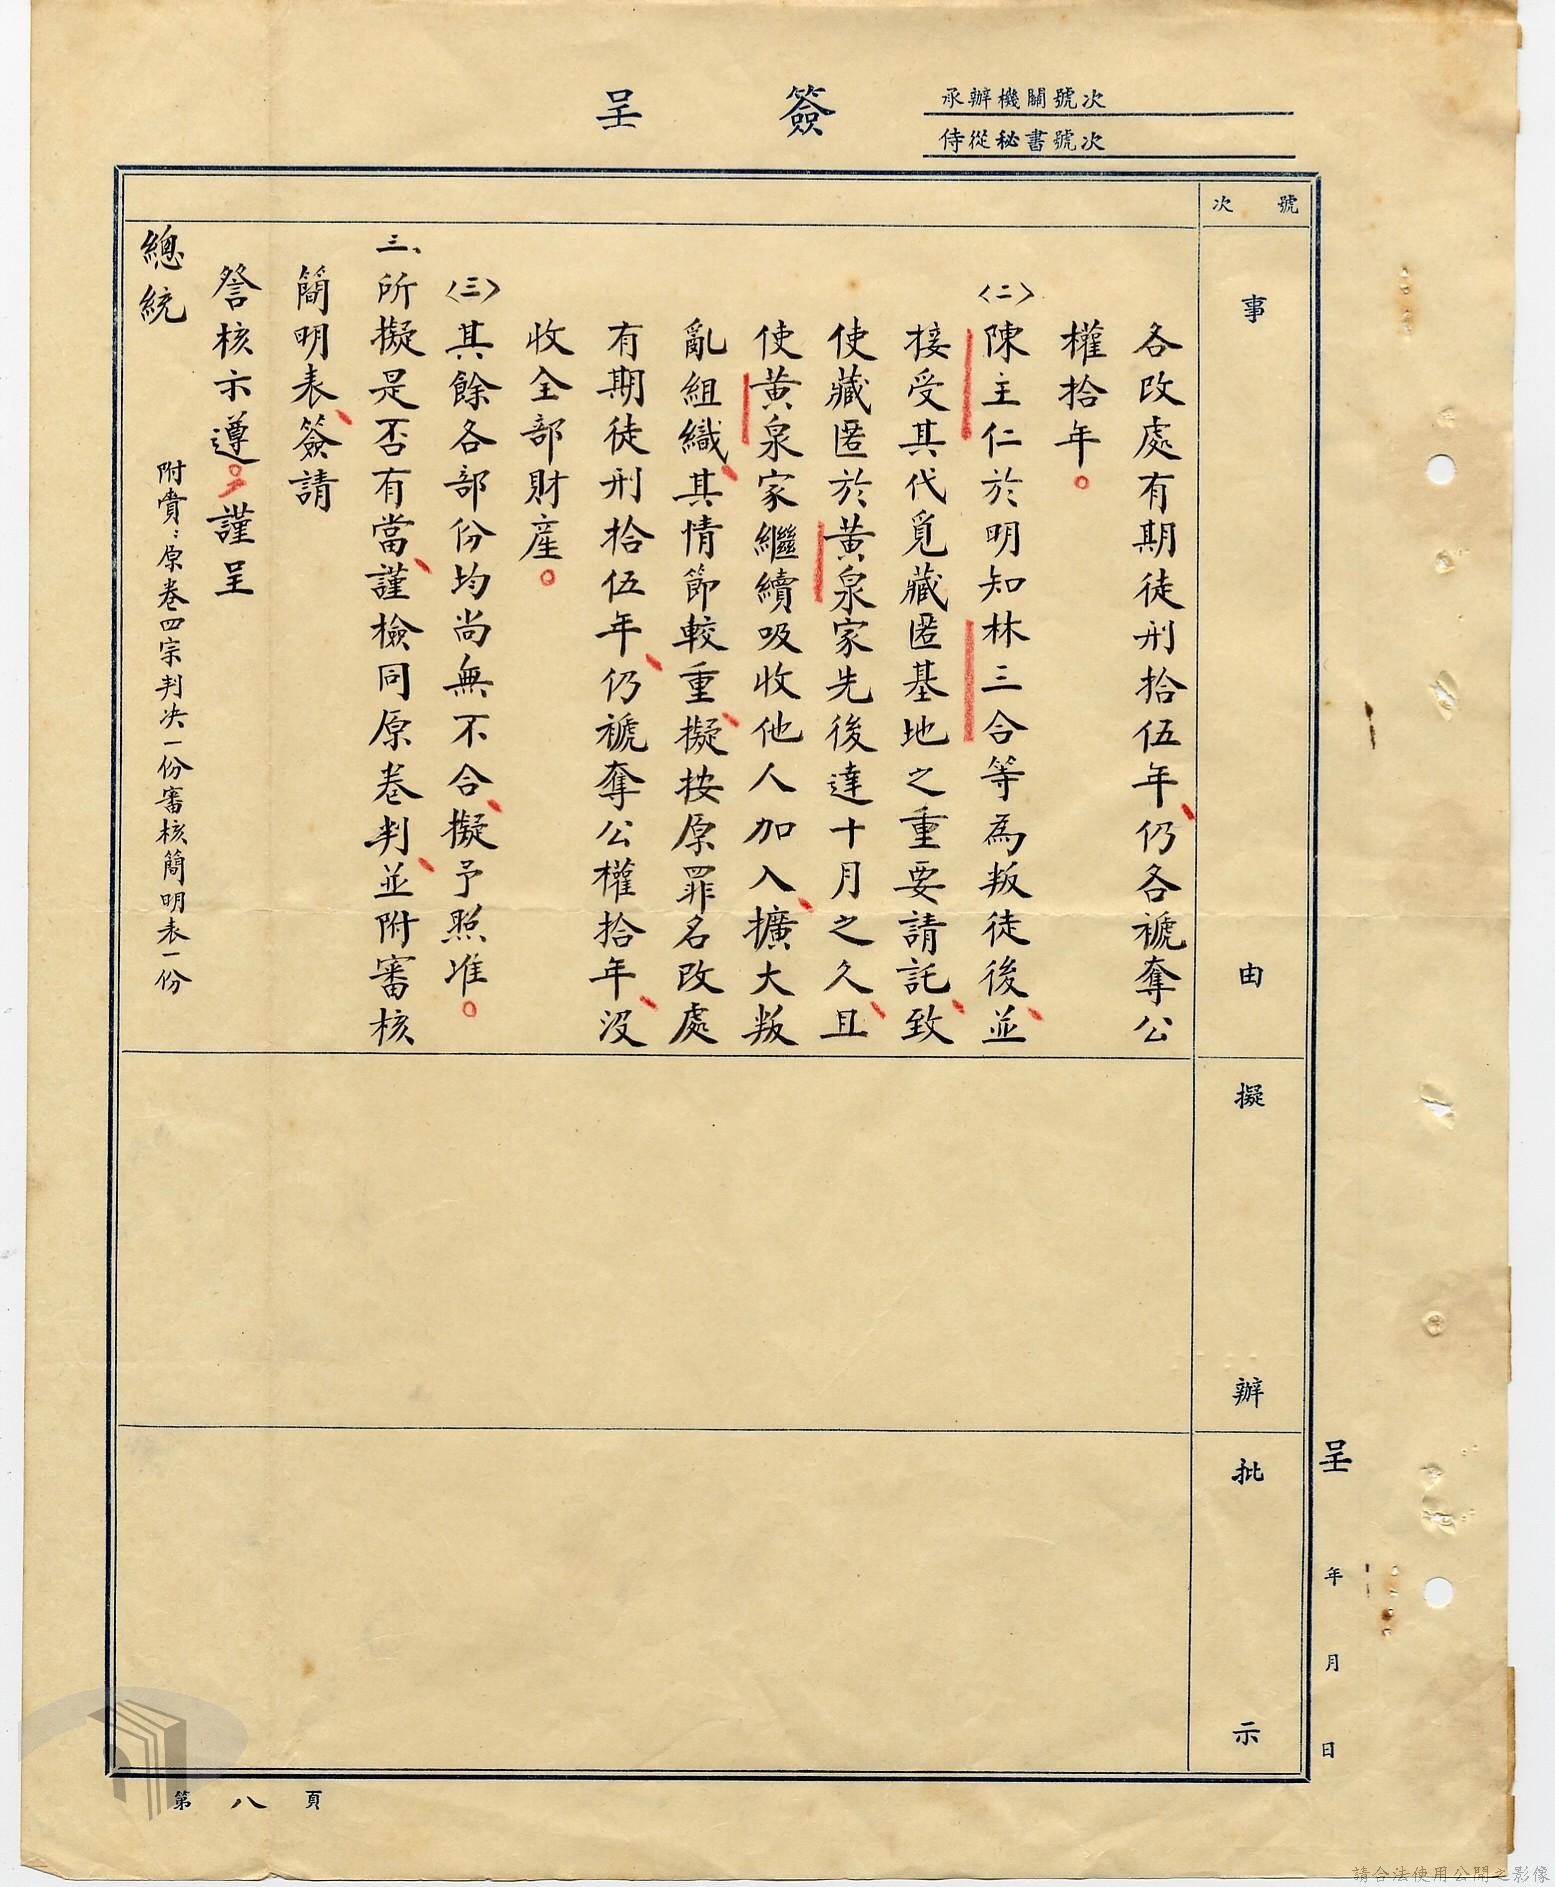 簽呈
承辦機關號次
侍從秘書號次
號次
事由
擬辦
批示
各改處有期徒刑拾伍年、仍各褫奪公
權拾年。
〈二〉陳主仁於明知林三合等為叛徒後、並
接受其代覓藏匿基地之重要請託、致
使藏匿於黃泉家先後達十月之久、且
使黃泉家繼續吸收他人加入、擴大叛
亂組織、其情節較重、擬按原罪名改處
有期徒刑拾伍年、仍褫奪公權拾年、沒
收全部財產。
〈三〉其餘各部份均尚無不合、擬予照准。
三、所擬是否有當、謹檢同原卷判、並附審核
簡明表、簽請
詧核示遵。謹呈
總統
附賫:原卷四宗判決一份審核簡明表一份
呈 年 月 日
第八頁
請合法使用公開之影像